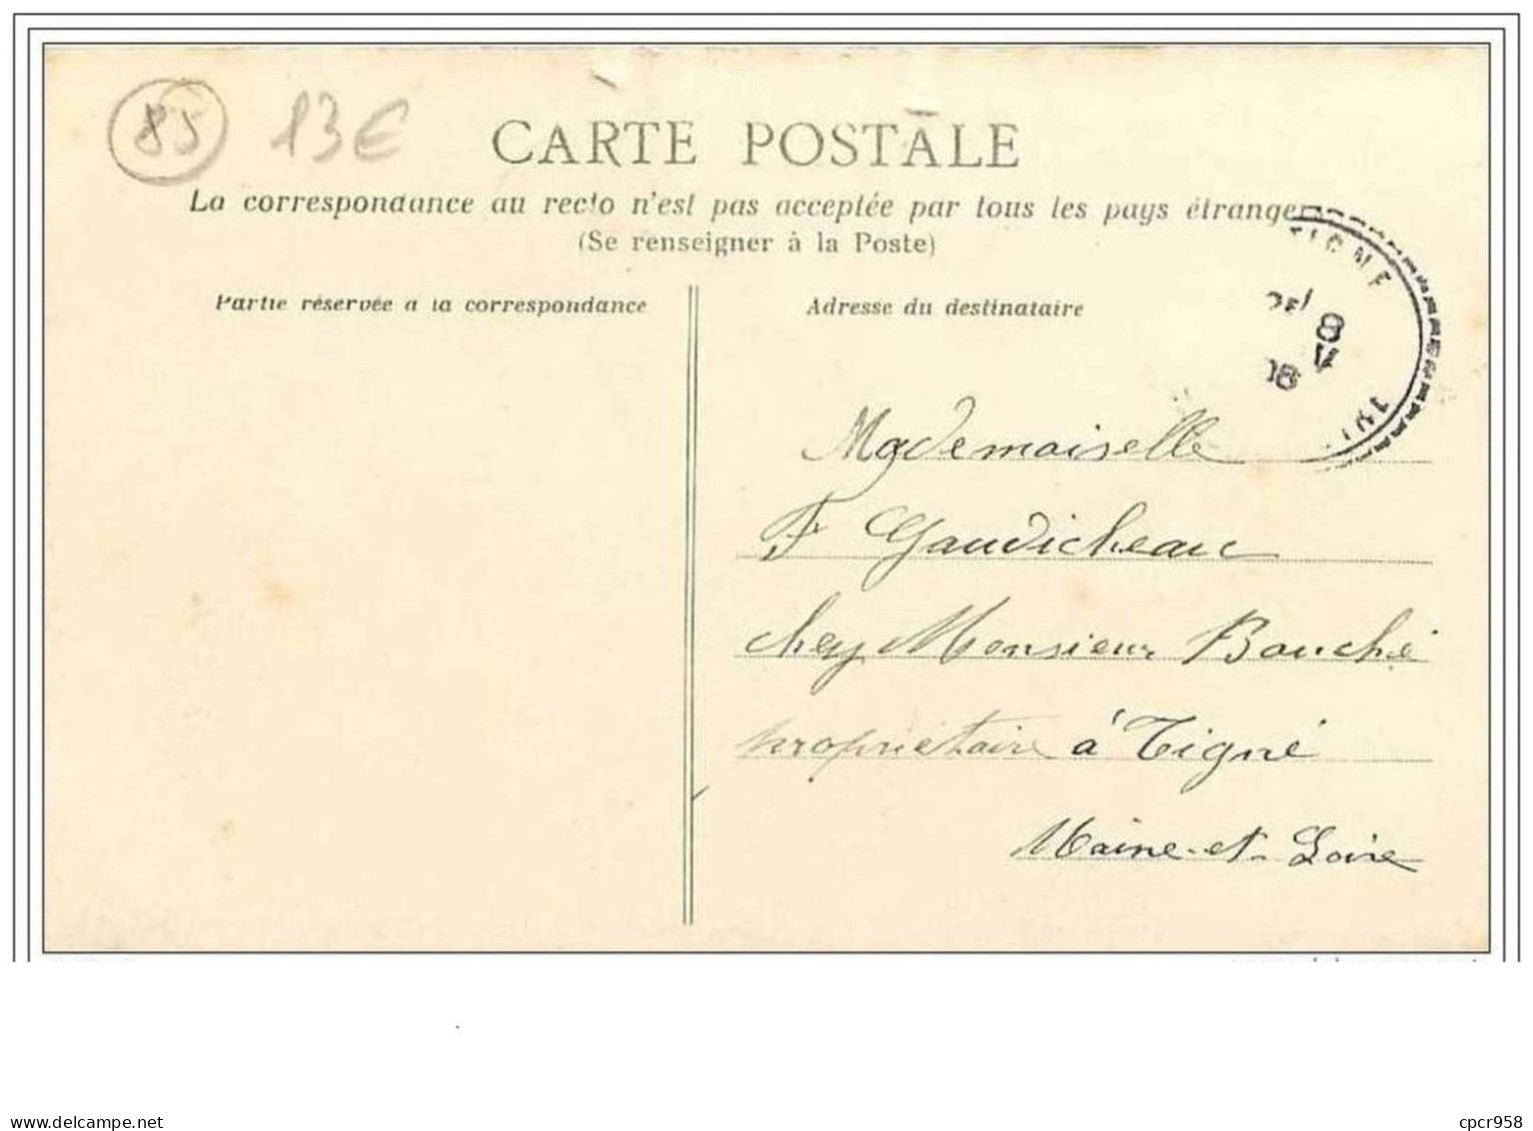 85 13€
CARTE POSTALE
La correspondance au recto n'est pas acceptée par tous les pays étrangers
(Se renseigner à la Poste)
Partie réservée a la correspondance
Adresse du destinataire
TIGNE
8
08
Mademoiselle
F Gaudicheau
chez Monsieur Bouché
propriétaire à Tigné
Maine-et-Loire
cpcr958